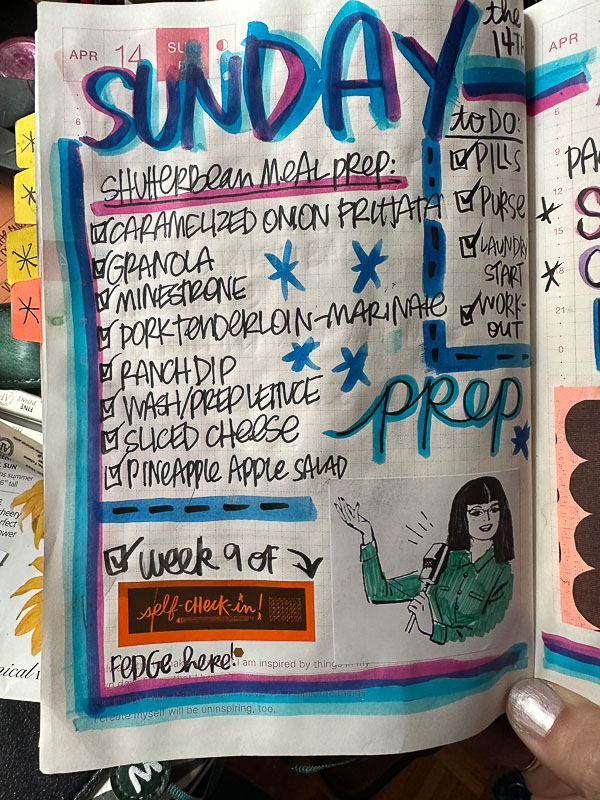 APR 14 SUN
the
14TH
SUNDAY
SHUTTERBEAN MEAL PREP:
CARAMELIZED ONION FRITTATA
GRANOLA
MINESTRONE
PORK TENDERLOIN-MARINATE
RANCH DIP
WASH/PREP LETTUCE
SLICED CHEESE
PINEAPPLE APPLE SALAD
to DO:
PILLS
PURSE
LAUNDRY
START
WORK-
OUT
prep
week 9 of
self-check-in!
FEDGE here!
I am inspired by things in my
I create myself will be uninspiring, too.
APR
6